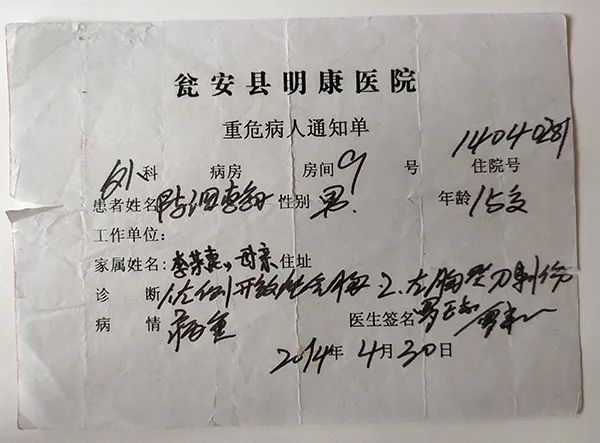 瓮安县明康医院
重危病人通知单
外科 病房 房间 9 号 1404081 住院号
患者姓名 陈泗翰 性别 男. 年龄 15岁
工作单位:
家属姓名: 李荣惠,,母亲 住址
诊断 左侧开放性气胸 2.左胸壁刀刺伤
病情 病重 医生签名
2014年4月30日